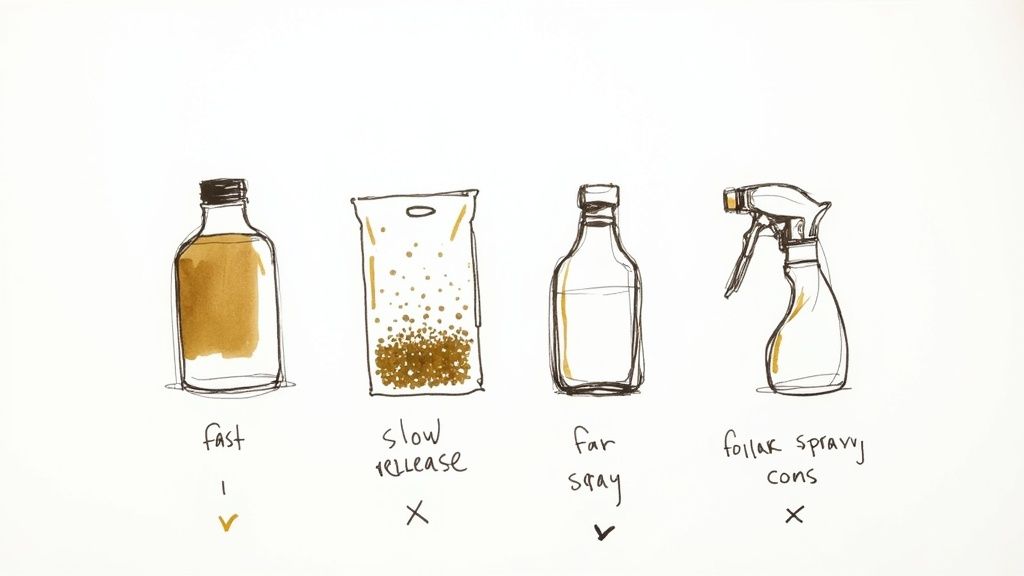 fast
slow
release
far
sqay
foliak spravy
cons